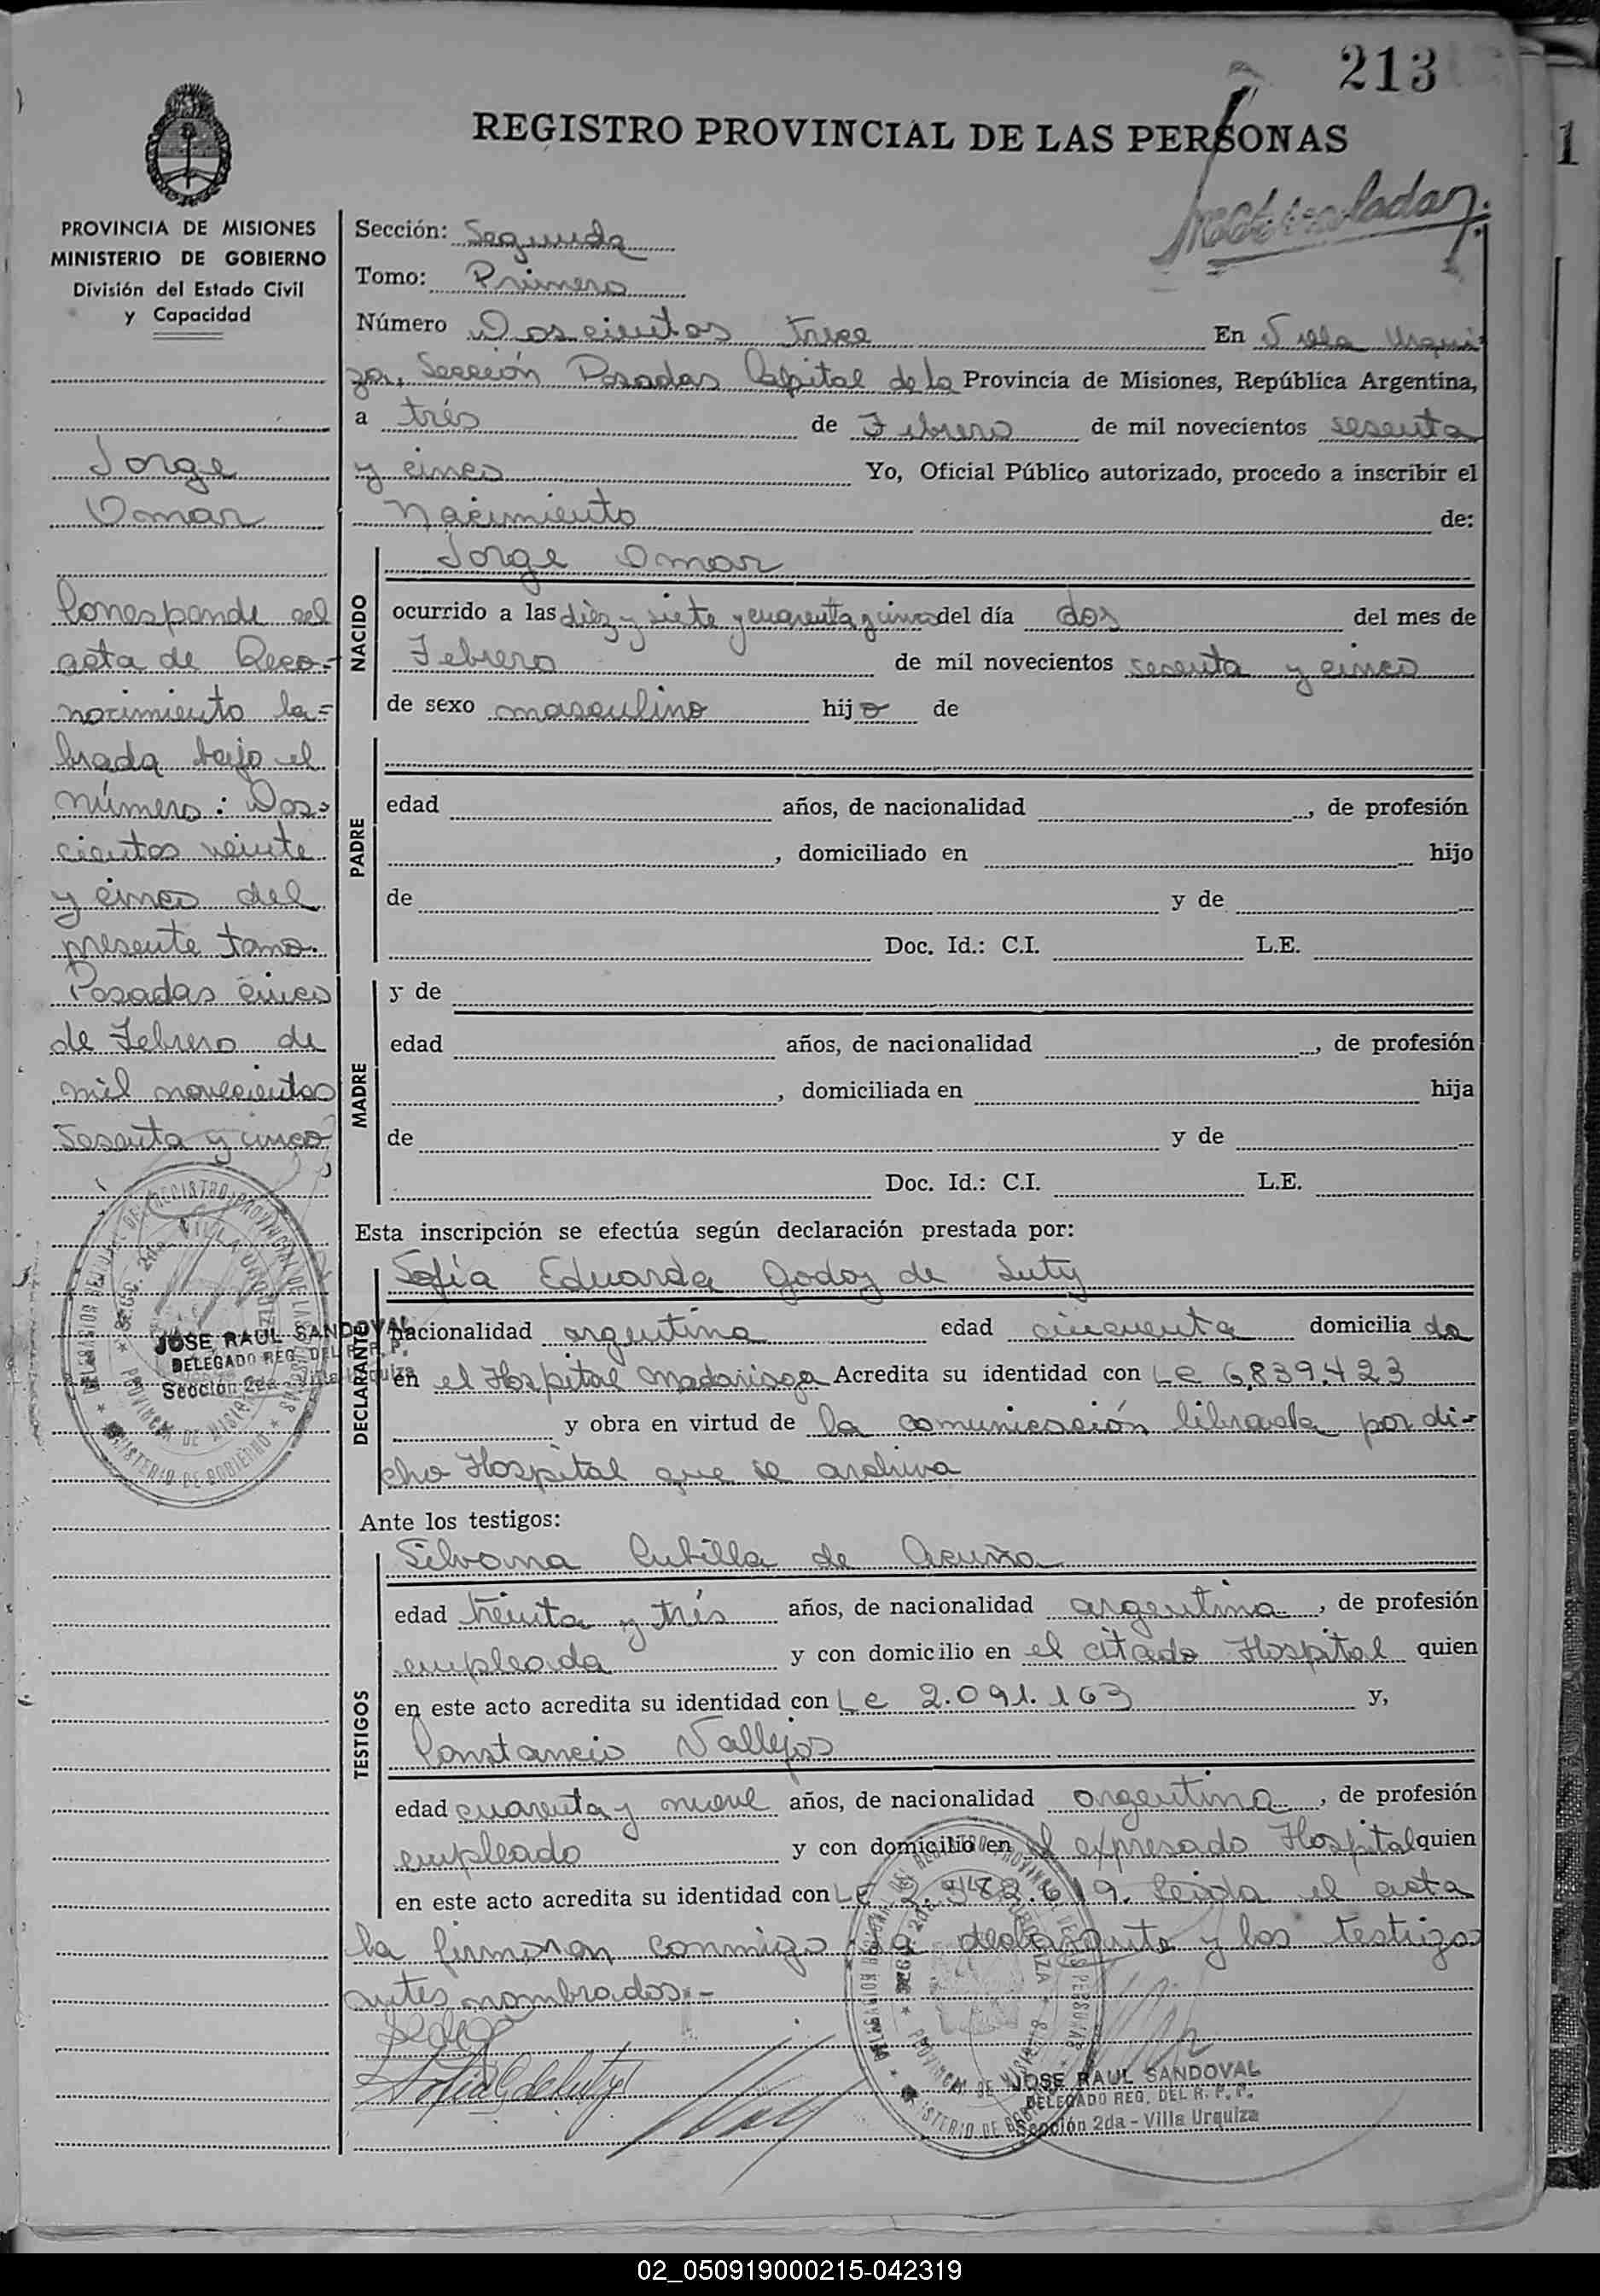 213
REGISTRO PROVINCIAL DE LAS PERSONAS
PROVINCIA DE MISIONES
MINISTERIO DE GOBIERNO
División del Estado Civil
y Capacidad
Jorge
Omar
Corresponde al
acta de Reco=
nocimiento la=
brada bajo el
número: Dos=
cientos veinte
y cinco del
presente tomo.
Posadas cinco
de Febrero de
mil novecientos
sesenta y cinco
JOSE RAUL SANDOVAL
DELEGADO REG. DEL R. P. P.
Sección 2da - Villa Urquiza
Sección: Segunda
Tomo: Primero
Número Doscientos trece En Villa Urqui=
za, Sección Posadas Capital de la Provincia de Misiones, República Argentina,
a trés de Febrero de mil novecientos sesenta
y cinco Yo, Oficial Público autorizado, procedo a inscribir el
Nacimiento de:
NACIDO
Jorge Omar
ocurrido a las diéz y siete y cuarenta y cinco del día dos del mes de
Febrero de mil novecientos sesenta y cinco
de sexo masculino hijo de
PADRE
edad años, de nacionalidad , de profesión
, domiciliado en hijo
de y de
Doc. Id.: C.I. L.E.
MADRE
y de
edad años, de nacionalidad , de profesión
, domiciliada en hija
de y de
Doc. Id.: C.I. L.E.
Esta inscripción se efectúa según declaración prestada por:
DECLARANTE
Sofía Eduarda Godoy de Luty
nacionalidad argentina edad cincuenta domicilia da
en el Hospital Madariaga Acredita su identidad con LC 6.839.423
y obra en virtud de la comunicación librada por di=
cho Hospital que se archiva
Ante los testigos:
TESTIGOS
Silvana Cubilla de Acuña
edad treinta y trés años, de nacionalidad argentina, de profesión
empleada y con domicilio en el citado Hospital quien
en este acto acredita su identidad con LC 2.091.163 y,
Constancio Vallejos
edad cuarenta y nueve años, de nacionalidad argentina, de profesión
empleado y con domicilio en el expresado Hospital quien
en este acto acredita su identidad con LE Leída el acta
la firmaran conmigo la declarante y los testigos
antes nombrados.-
JOSE RAUL SANDOVAL
DELEGADO REG. DEL R. P. P.
Sección 2da - Villa Urquiza
02_050919000215-042319